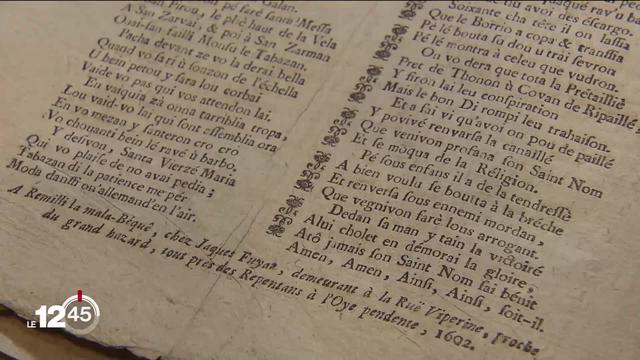 Galan.
Pirou, le plè haut de la Vela
A San Zarvai, & poi à San Zarman
Ossi-san failli Mousu le Tabazan.
Pacha devant ze vo la derai bella
Quand vo farri ù sonzon de l'échella
U bein petou y fara lou corbai
Vaide vo pas qui vos attendon lai.
En vaiquia zà onna tarriblia tropa,
Lou vaide-vo lai qui font assemblia ora
En vo mezaa y fanteron cro crò
Vo chouanti bein lé ravé ù barbo.
Y desivon, Santa Vierzé Maria
Qui vo plaise de no avai pedia;
Tabazan di la patience me pèr
Moda danssi qu'allemand d'en l'air.
A Remilli la mala-Béquê, chez Jaques Fuyan, demeurant à la Ruë Viperine, proche
du grand hazard, tous près des Repentans à l'Oye pendente, 1602.
avoi des éscargo.
Soixante cha tête il on lassa
Que le Borrio a copa & transsia
Pé lé bouta su dou u trài sevron
Pé lé montrà à celeu que vudron.
On vo dera que tota la Prétaillie
Pret de Thonon à Covan de Ripaillé
Y firon lai leu conspiration
Mais le bon Di, rompi leu trahaison.
Et a fai vi qu'avoi on pou de paillé
Y povivé renvarsa la canaillé
Que venivon profana son Saint Nom
Et se moqua de la Réligion.
Pé sous enfans il a de la tendressè
A bien voulu se boutta à la brêche
Et renversa sous ennemi mordan,
Que vegnivon farè lous arrogant.
Dedan sa man y tain la victoirè
Alui cholet en démorai la gloire,
Atô jamais son Saint Nom sai bénit
Amen, Amen, Ainsi, Ainsi, soit-il.
LE 12 45